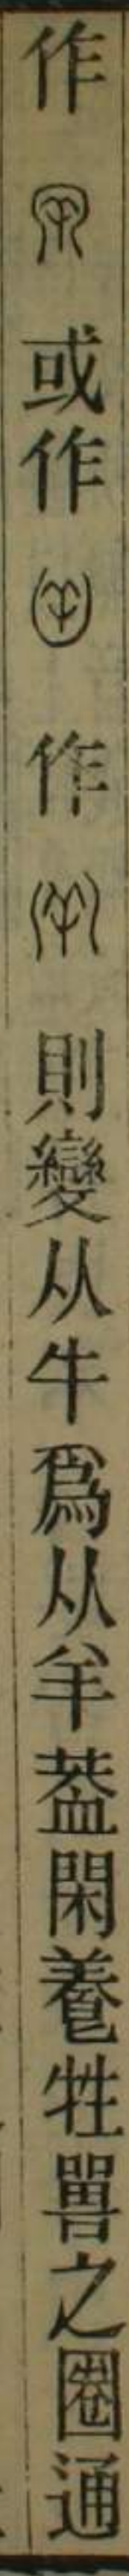 作或作作則變从牛爲从羊葢閑養牲嘼之圈通